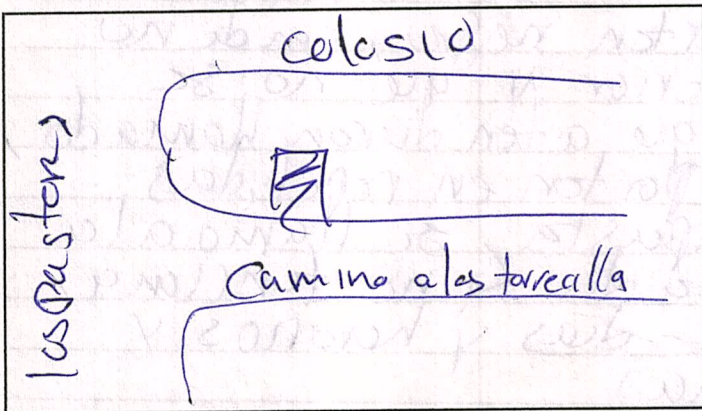 colosio
los Pastores
Camino a los torrealla